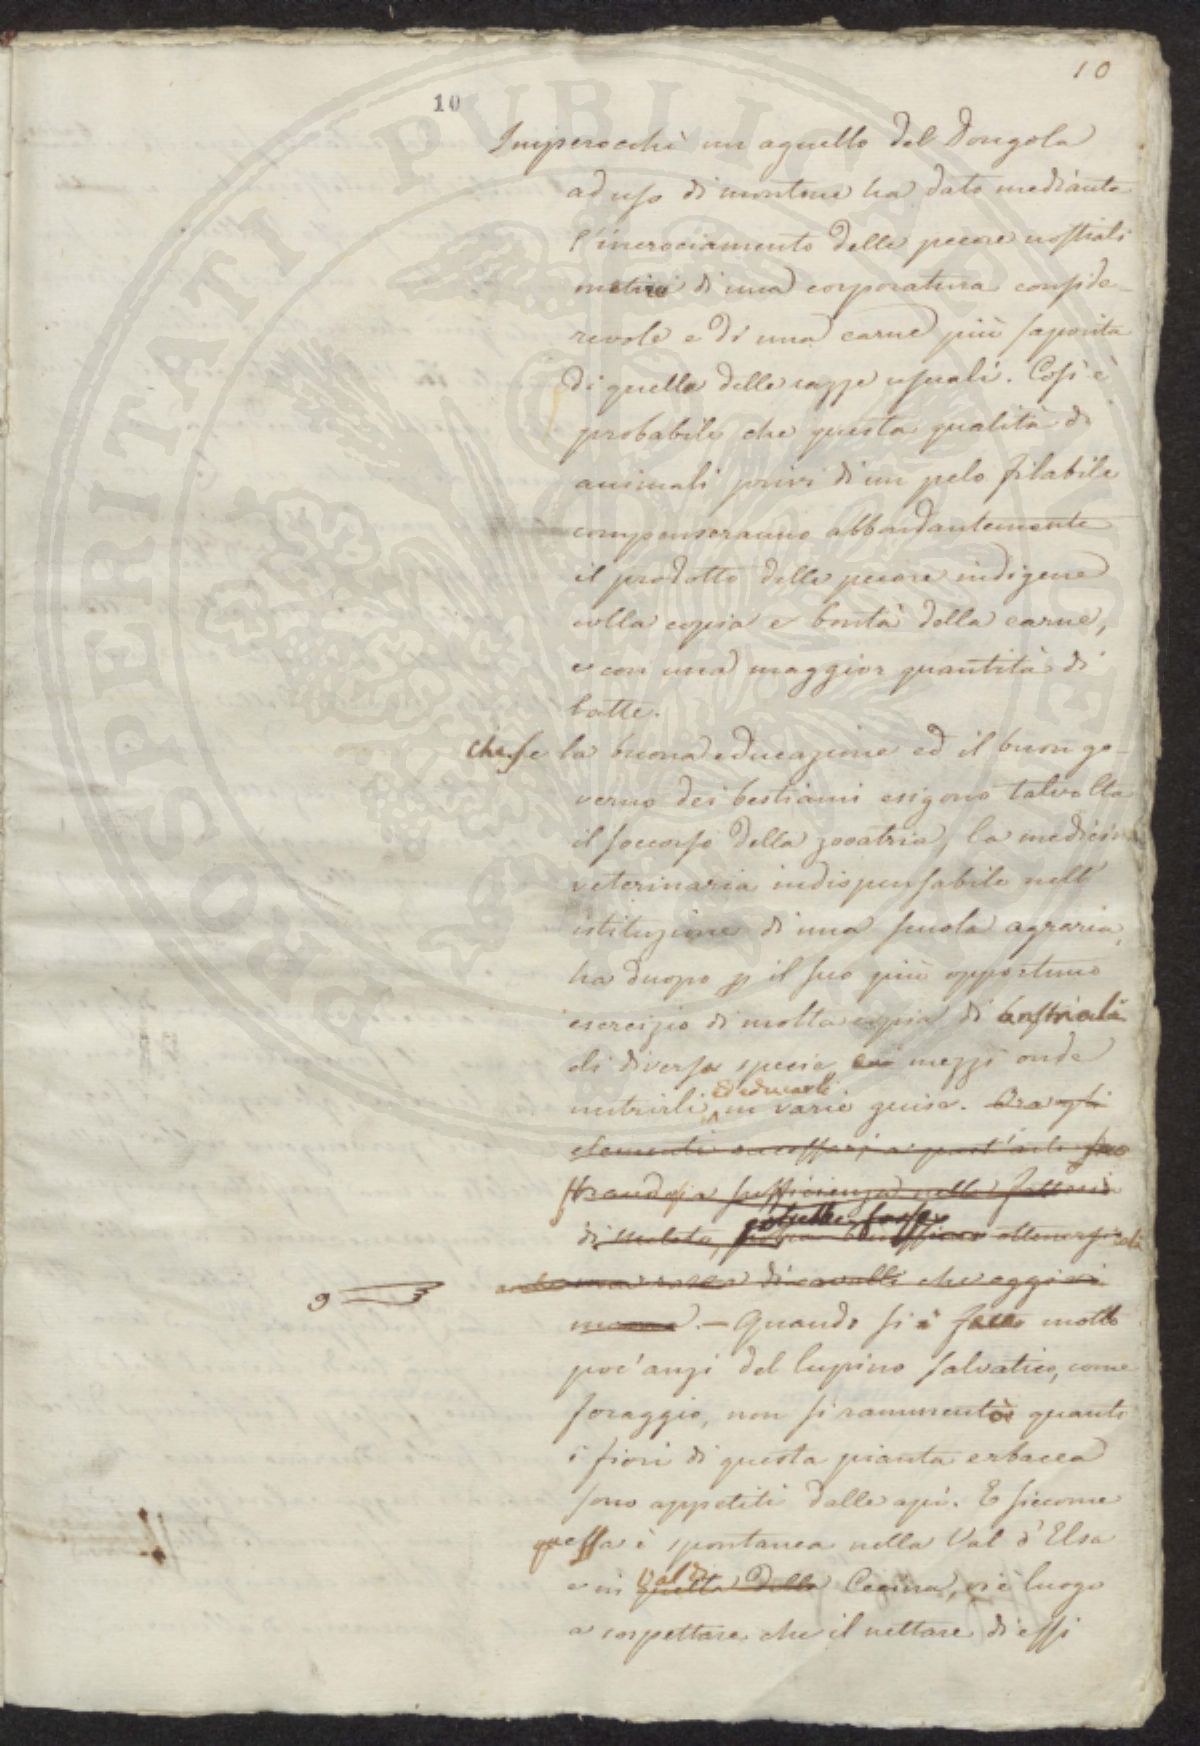 10
10
Imperocchè un agnello del Dongola
ad uso di montone ha dato mediante
l'incrociamento delle pecore nostrali
meticci di una corporatura conside-
revole e di una carne più saporita
di quella delle razze usuali. Così è
probabile che questa qualità di
animali privi di un pelo filabile
compenseranno abbondantemente
il prodotto delle pecore indigene
colla copia e bontà della carne,
e con una maggior quantità di
latte.
Che se la buona educazione ed il buon go-
verno dei bestiami esigono talvolta
il soccorso della zooatria, la medicina
veterinaria indispensabile nell'
istituzione di una scuola agraria,
ha duopo p il suo più opportuno
esercizio di molta copia di bestiali
di diverse specie mezzi onde
ed educarli
nutrirli in varie guise. Ora gli
elementi necessari a quest'arte
sufficienza nella fattoria
di Meleto, potrebbe forse ottenersi
una razza di cavalli che oggi
9
. — Quando si è fatto motto
poc'anzi del lupino salvatico, come
foraggio, non si rammentò quanto
i fiori di questa pianta erbacea
sono appetiti dalle api. E siccome
questa è spontanea nella Val d'Elsa
Val di
e in quella della Cecina, vi è luogo
a sospettare che il nettare di essi
PROSPERITATI PUBLICAE AUGENDAE